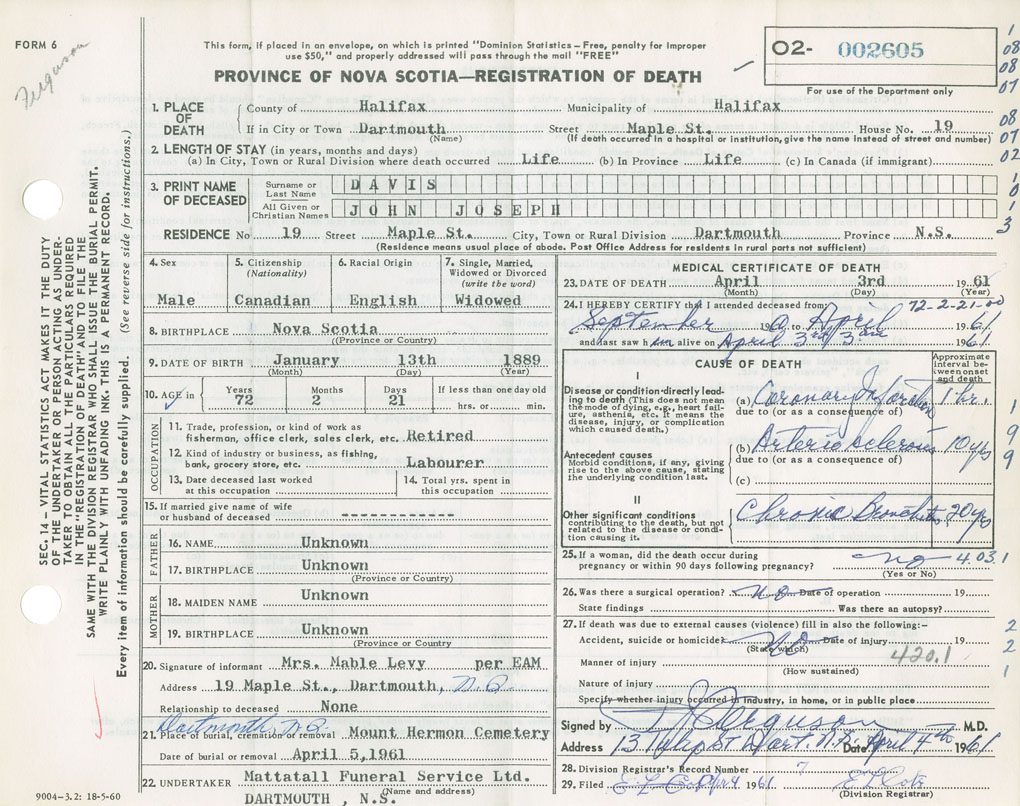 FORM 6
Ferguson
This form, if placed in an envelope, on which is printed "Dominion Statistics—Free, penalty for improper
use $50," and properly addressed will pass through the mail "FREE"
PROVINCE OF NOVA SCOTIA—REGISTRATION OF DEATH
O2- 002605
For use of the Department only
1. PLACE OF DEATH
County of Halifax Municipality of Halifax
If in City or Town Dartmouth Street Maple St. House No. 19
(Name) (If death occurred in a hospital or institution, give the name instead of street and number)
2. LENGTH OF STAY (in years, months and days)
(a) In City, Town or Rural Division where death occurred Life (b) In Province Life (c) In Canada (if immigrant)
3. PRINT NAME OF DECEASED
Surname or Last Name DAVIS
All Given or Christian Names JOHN JOSEPH
RESIDENCE No 19 Street Maple St. City, Town or Rural Division Dartmouth Province N.S.
(Residence means usual place of abode. Post Office Address for residents in rural parts not sufficient)
4. Sex
Male
5. Citizenship
(Nationality)
Canadian
6. Racial Origin
English
7. Single, Married,
Widowed or Divorced
(write the word)
Widowed
8. BIRTHPLACE Nova Scotia
((Province or Country)
9. DATE OF BIRTH January 13th 1889
(Month) (Day) (Year)
10. AGE in Years 72 Months 2 Days 21 If less than one day old
hrs. or min.
OCCUPATION
11. Trade, profession, or kind of work as
fisherman, office clerk, sales clerk, etc. Retired
12. Kind of industry or business, as fishing,
bank, grocery store, etc. Labourer
13. Date deceased last worked
at this occupation
14. Total yrs. spent in
this occupation
15. If married give name of wife
or husband of deceased
FATHER
16. NAME Unknown
17. BIRTHPLACE Unknown
(Province or Country)
MOTHER
18. MAIDEN NAME Unknown
19. BIRTHPLACE Unknown
(Province or Country)
20. Signature of informant Mrs. Mable Levy per EAM
Address 19 Maple St., Dartmouth, N.S.
Relationship to deceased None
Dartmouth, N.S.
21. Place of burial, cremation or removal Mount Hermon Cemetery
Date of burial or removal April 5,1961
22. UNDERTAKER Mattatall Funeral Service Ltd.
(Name and address)
DARTMOUTH , N.S.
9004-3.2: 18-5-60
MEDICAL CERTIFICATE OF DEATH
23. DATE OF DEATH April 3rd 1961
(Month) (Day) (Year)
24. I HEREBY CERTIFY that I attended deceased from:
72-2-21-00
September 1960 to April 1961
and last saw him alive on April 3rd 3 am 1961
CAUSE OF DEATH
Approximate
interval between onset
and death
I
Disease or condition directly leading to death (This does not mean
the mode of dying, e.g., heart failure, asthenia, etc. It means the
disease, injury, or complication
which caused death.)
(a) Coronary Infarction 1 hr.
due to (or as a consequence of)
Antecedent causes
Morbid conditions, if any, giving
rise to the above cause, stating
the underlying condition last.
(b) Arteriosclerosis 10 yrs
due to (or as a consequence of)
(c)
II
Other significant conditions
contributing to the death, but not
related to the disease or condition causing it.
Chronic Bronchitis 20 yrs
25. If a woman, did the death occur during
pregnancy or within 90 days following pregnancy? no
(Yes or No)
4031
26. Was there a surgical operation? no Date of operation 19
State findings Was there an autopsy?
27. If death was due to external causes (violence) fill in also the following:-
Accident, suicide or homicide? No Date of injury 19
(State which)
420.1
Manner of injury
(How sustained)
Nature of injury
Specify whether injury occurred in industry, in home, or in public place
Signed by Ferguson M.D.
Address 13 Tulip St Dart. N.S. Date April 4th 1961
28. Division Registrar's Record Number 7
29. Filed 1961
(Division Registrar)
SEC. 14 — VITAL STATISTICS ACT MAKES IT THE DUTY
OF THE UNDERTAKER OR PERSON ACTING AS UNDERTAKER TO OBTAIN ALL THE PARTICULARS REQUIRED
IN THE "REGISTRATION OF DEATH" AND TO FILE THE
SAME WITH THE DIVISION REGISTRAR WHO SHALL ISSUE THE BURIAL PERMIT.
WRITE PLAINLY WITH UNFADING INK. THIS IS A PERMANENT RECORD.
Every item of information should be carefully supplied. (See reverse side for instructions.)
1
08
08
07
08
07
02
10
3
1
9
9
2
2
1